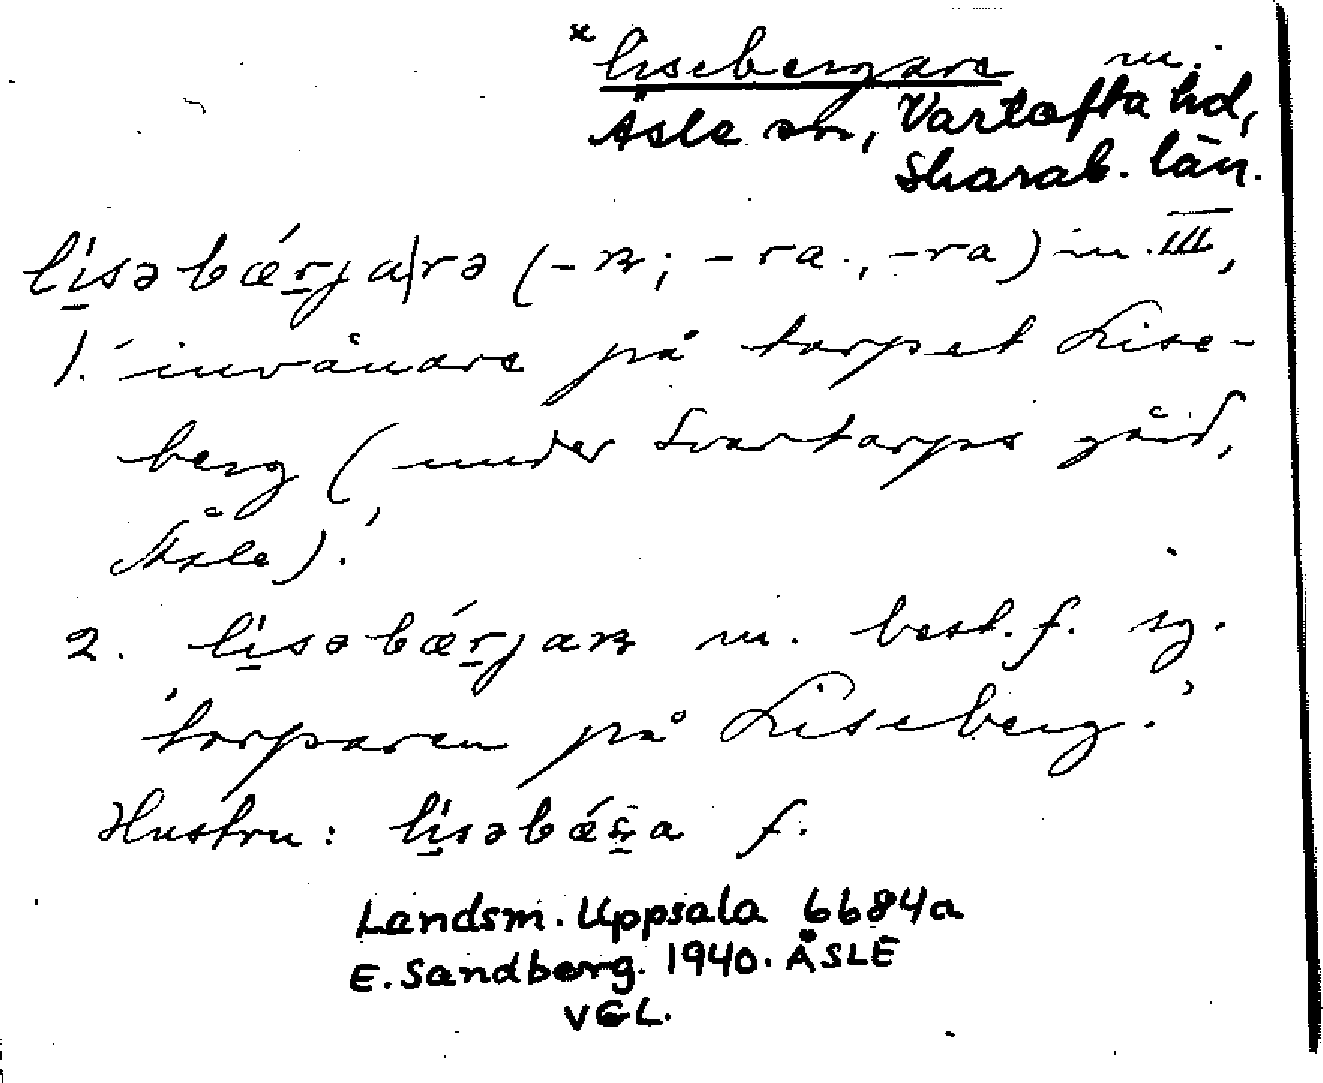 *lisebergare m.
Åsle sn, Vartofta hd,
Skarab. län.
li̱səbǽṟja|rə (-n; -ra, -ra) m. III,
1. 'invånare på torpet Lise-
berg (under Svartorps gård,
Åsle).'
2. li̱səbǽṟjan m. best. f. sg.
'torparen på Liseberg.'
Hustru: f.
Landsm. Uppsala 6684a
E. Sandberg. 1940. ÅSLE
VGL.